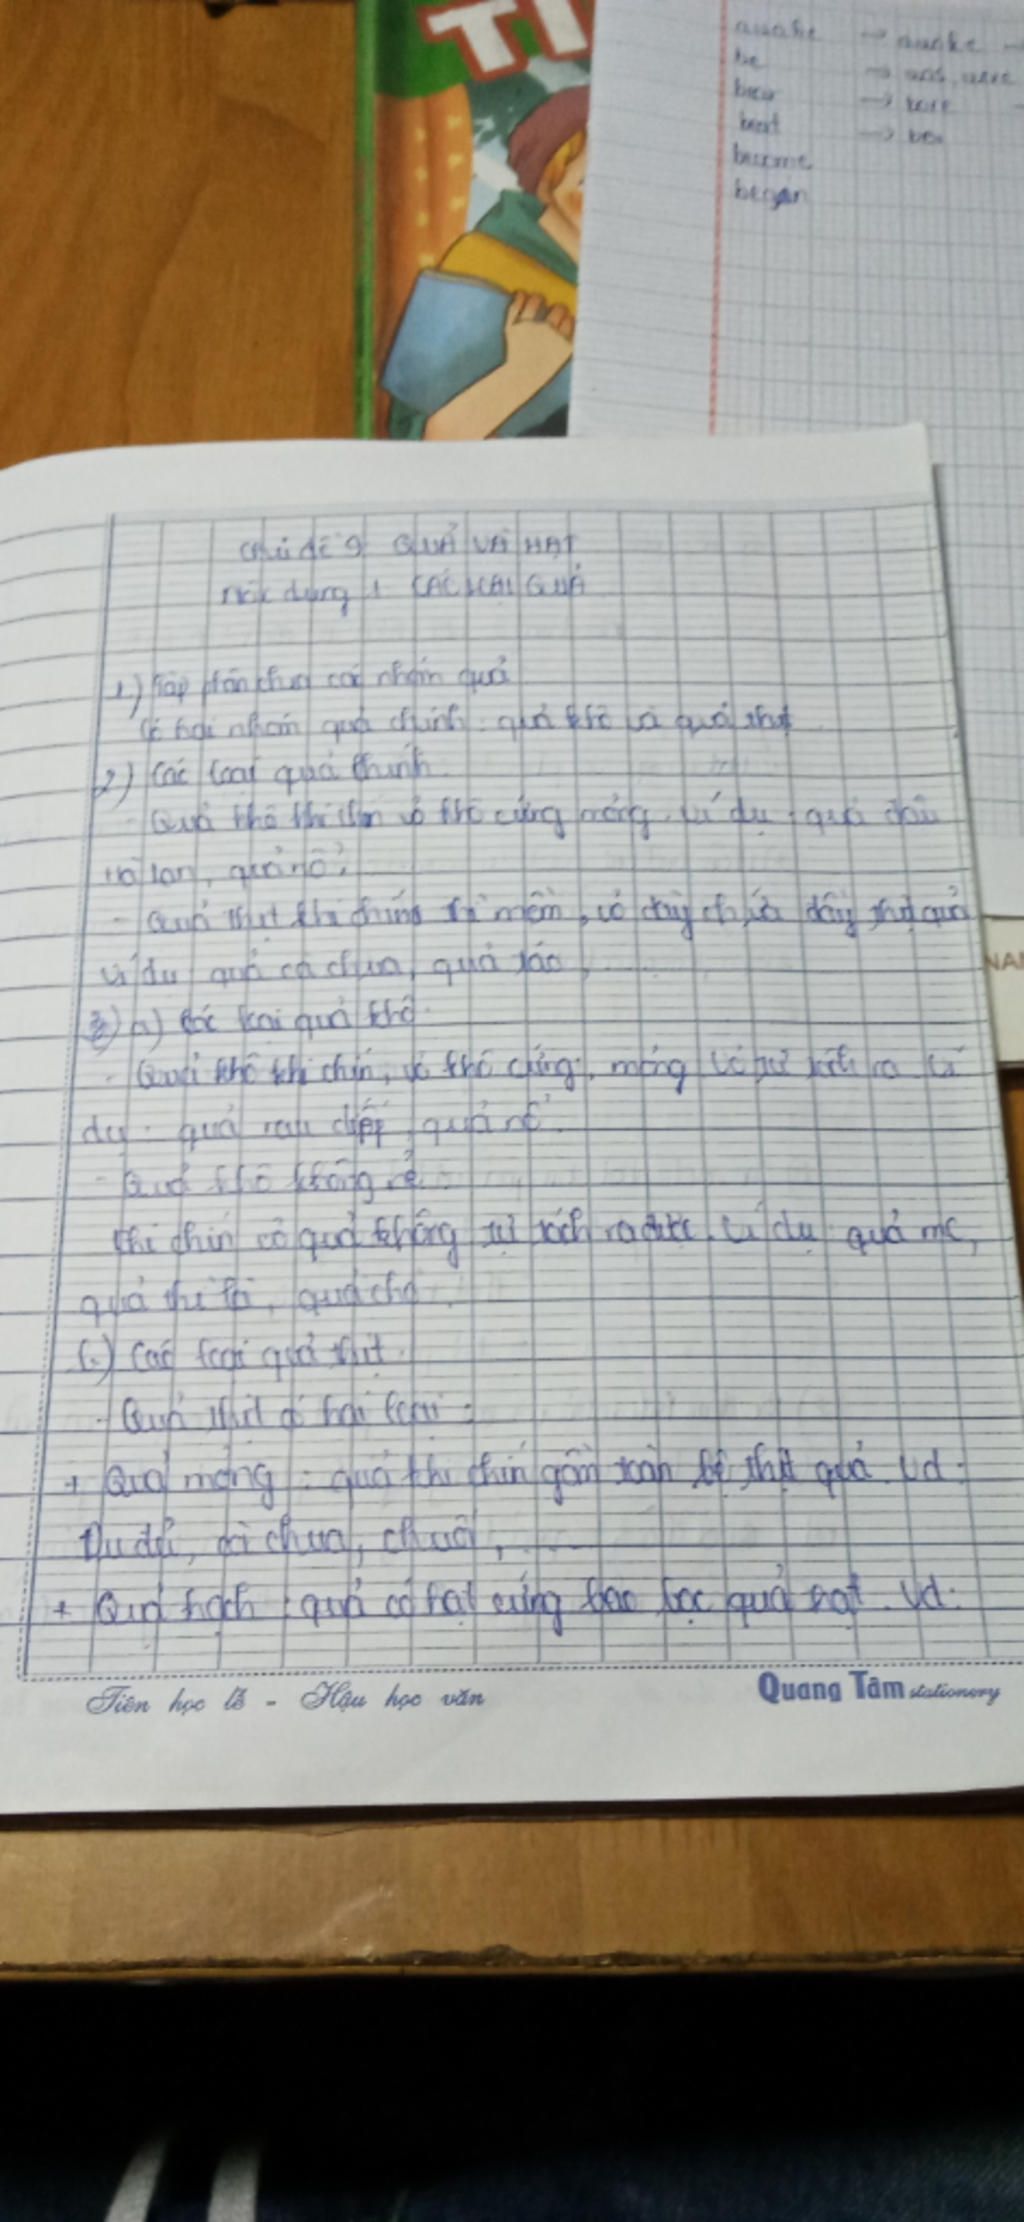 TI
awake → awoke →
be → was, were
bear → bore
beat → bea
become
began
Chủ đề 9 QUẢ VÀ HẠT
Nội dung 1 CÁC LOẠI QUẢ
1) các nhóm quả
Có hai nhóm quả chính: quả khô và quả thịt
2) Các loại quả chính
Quả khô khi chín vỏ khô cứng mỏng. Ví dụ: quả đậu
Hà Lan, quả nổ
- Quả thịt khi chín thì mềm, vỏ dày chứa đầy thịt quả
ví dụ quả cà chua, quả táo,
3) a) Các loại quả khô
- Quả khô khi chín, vỏ khô cứng, mỏng vỏ tự ra ví
dụ: quả rau diếp, quả nổ
- Quả khô không nẻ
Khi chín vỏ quả không tự tách ra được. Ví dụ: quả me,
quả thì là, quả chò
Các loại quả thịt
- Quả thịt có hai loại:
+ Quả mọng: quả khi chín gần toàn bộ thịt quả. Vd:
Đu đủ, cà chua, chuối,
+ Quả hạch: quả có hạt cứng bao bọc quả hạt. Vd:
Tiên học lễ - Hậu học văn
Quang Tâm stationery
NAM